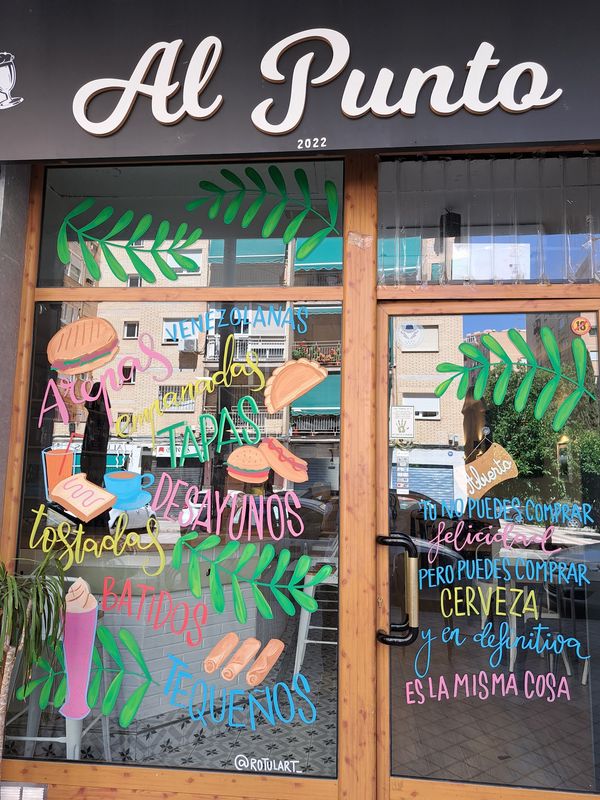 Al Punto
2022
VENEZOLANAS
Arepas
empanadas
TAPAS
DESAYUNOS
tostadas
BATIDOS
TEQUEÑOS
@ROTULART_
13
Abierto
NO PUEDES COMPRAR
felicidad
PERO PUEDES COMPRAR
CERVEZA
y en definitiva
ES LA MISMA COSA